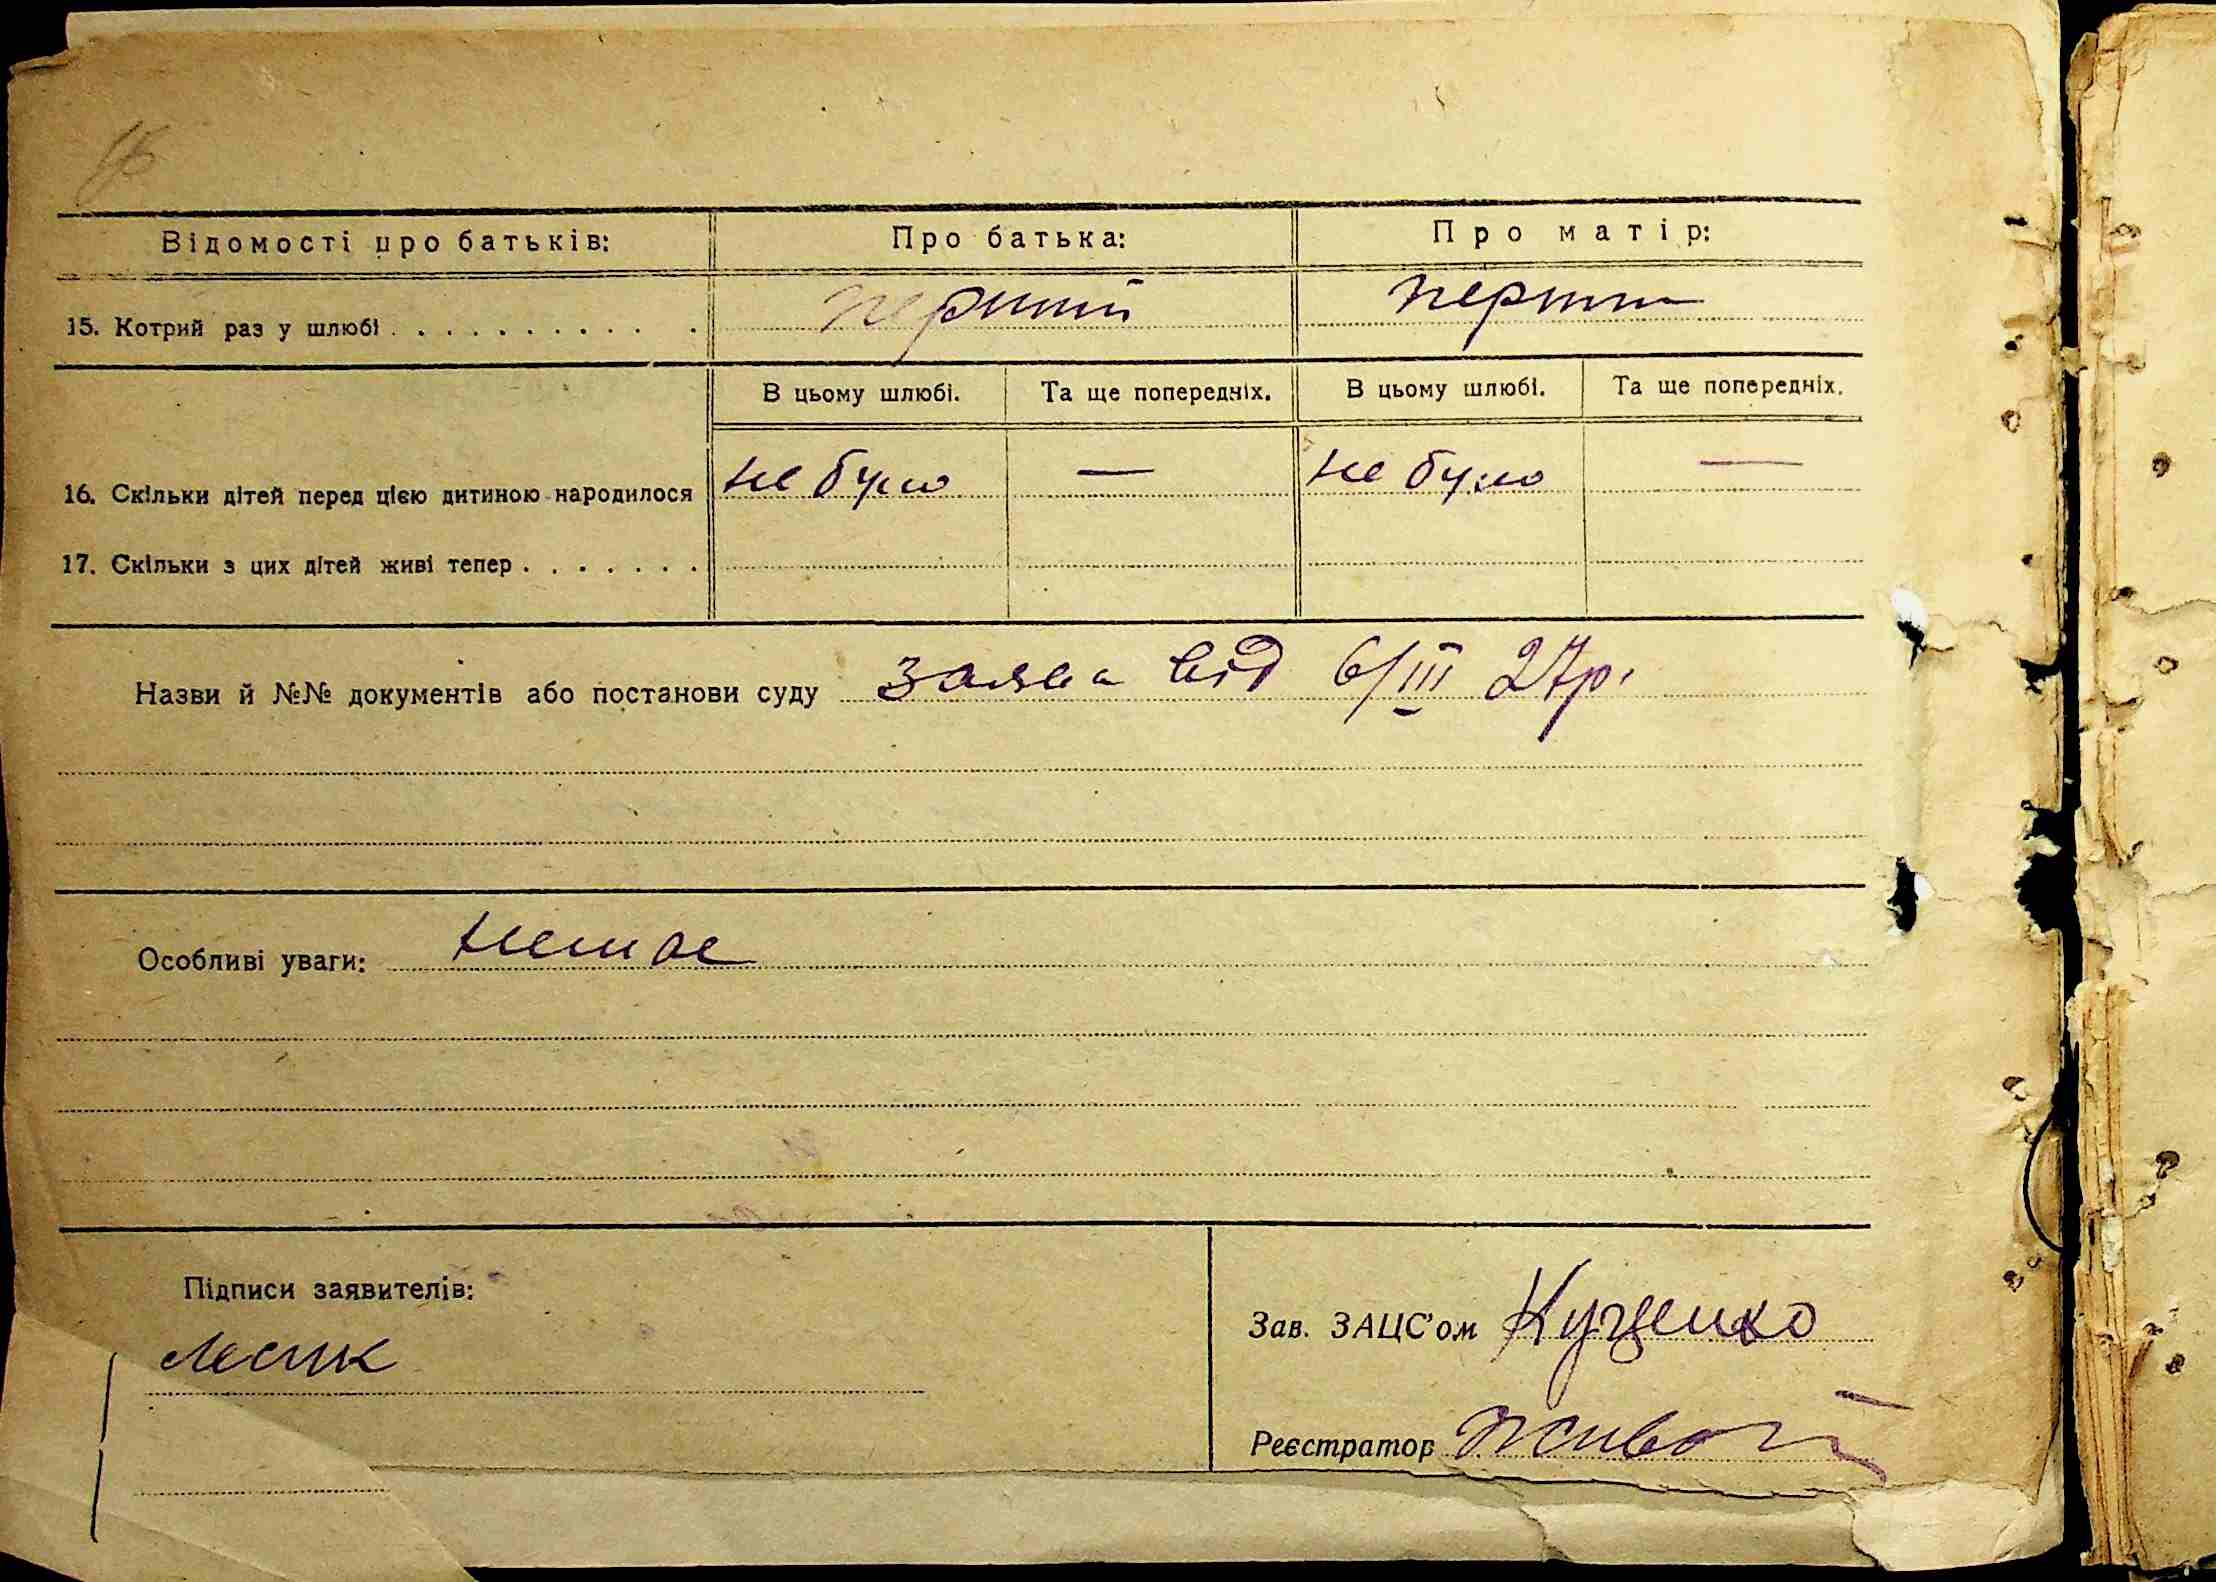 Відомості про батьків: Про батька: Про матір:
15. Котрий раз у шлюбі . . . . . . . . . . . перший перший
В цьому шлюбі. Та ще попередніх. В цьому шлюбі. Та ще попередніх.
16. Скільки дітей перед цією дитиною народилося не було — не було —
17. Скільки з цих дітей живі тепер . . . . . . .
Назви й №№ документів або постанови суду заява від 6/III 27р.
Особливі уваги: немає
Підписи заявителів:
Лесик
Зав. ЗАЦС'ом Куценко
Реєстратор